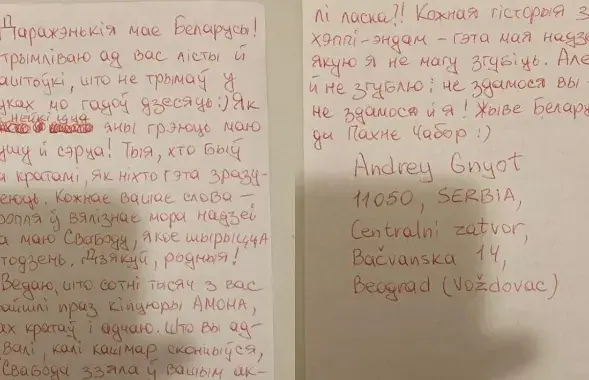 Даражэнькія мае Беларусы!
трымліваю ад вас лісты й
аштоўкі, што не трымаў у
уках мо гадоў дзесяць:) Як
яны грэюць маю
ушу й сэрца! Тыя, хто быў
а кратамі, як ніхто гэта зразу-
еюць. Кожнае вашае слова –
ропля ў вялізнае мора надзеі
а маю Свабоду, якое шырыцца
тодзень. Дзякуй, родныя!
Ведаю, што сотні тысяч з вас
айшлі праз кіпцюры АМОНА,
ах кратаў і адчаю. Што вы ад-
валі, калі кашмар скончыўся,
Свабода ззяла ў вашым ак-
лі ласка?! Кожная гісторыя з
хэппі-эндам – гэта мая надзе
якую я не магу згубіць. Але
й не згублю: не здамося вы –
не здамося й я! Жыве Белару
ды Пахне Чабор :)
Andrey Gnyot
11050, SERBIA,
Centralni zatvor,
Bačvanska 14,
Beograd (Voždovac)